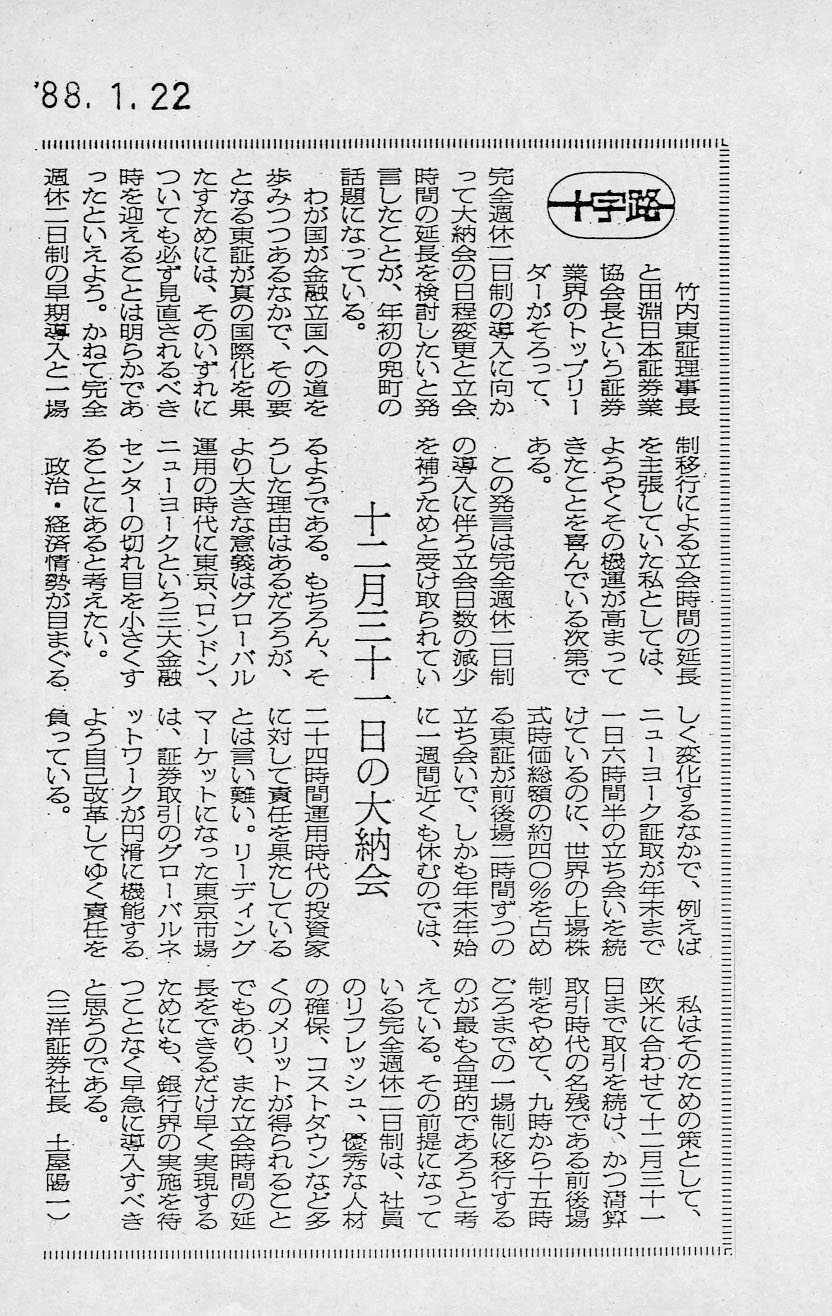 '88.1.22
十字路
竹内東証理事長
と田淵日本証券業
協会長という証券
業界のトップリー
ダーがそろって、
完全週休二日制の導入に向か
って大納会の日程変更と立会
時間の延長を検討したいと発
言したことが、年初の兜町の
話題になっている。
わが国が金融立国への道を
歩みつつあるなかで、その要
となる東証が真の国際化を果
たすためには、そのいずれに
ついても必ず見直されるべき
時を迎えることは明らかであ
ったといえよう。かねて完全
週休二日制の早期導入と一場
制移行による立会時間の延長
を主張していた私としては、
ようやくその機運が高まって
きたことを喜んでいる次第で
ある。
この発言は完全週休二日制
の導入に伴う立会日数の減少
を補うためと受け取られてい
十二月三十一日の大納会
るようである。もちろん、そ
うした理由はあるだろうが、
より大きな意義はグローバル
運用の時代に東京、ロンドン、
ニューヨークという三大金融
センターの切れ目を小さくす
ることにあると考えたい。
政治・経済情勢が目まぐる
しく変化するなかで、例えば
ニューヨーク証取が年末まで
一日六時間半の立ち会いを続
けているのに、世界の上場株
式時価総額の約四〇％を占め
る東証が前後場二時間ずつの
立ち会いで、しかも年末年始
に一週間近くも休むのでは、
二十四時間運用時代の投資家
に対して責任を果たしている
とは言い難い。リーディング
マーケットになった東京市場
は、証券取引のグローバルネ
ットワークが円滑に機能する
よう自己改革してゆく責任を
負っている。
私はそのための策として、
欧米に合わせて十二月三十一
日まで取引を続け、かつ清算
取引時代の名残である前後場
制をやめて、九時から十五時
ごろまでの一場制に移行する
のが最も合理的であろうと考
えている。その前提になって
いる完全週休二日制は、社員
のリフレッシュ、優秀な人材
の確保、コストダウンなど多
くのメリットが得られること
でもあり、また立会時間の延
長をできるだけ早く実現する
ためにも、銀行界の実施を待
つことなく早急に導入すべき
と思うのである。
（三洋証券社長　土屋陽一）